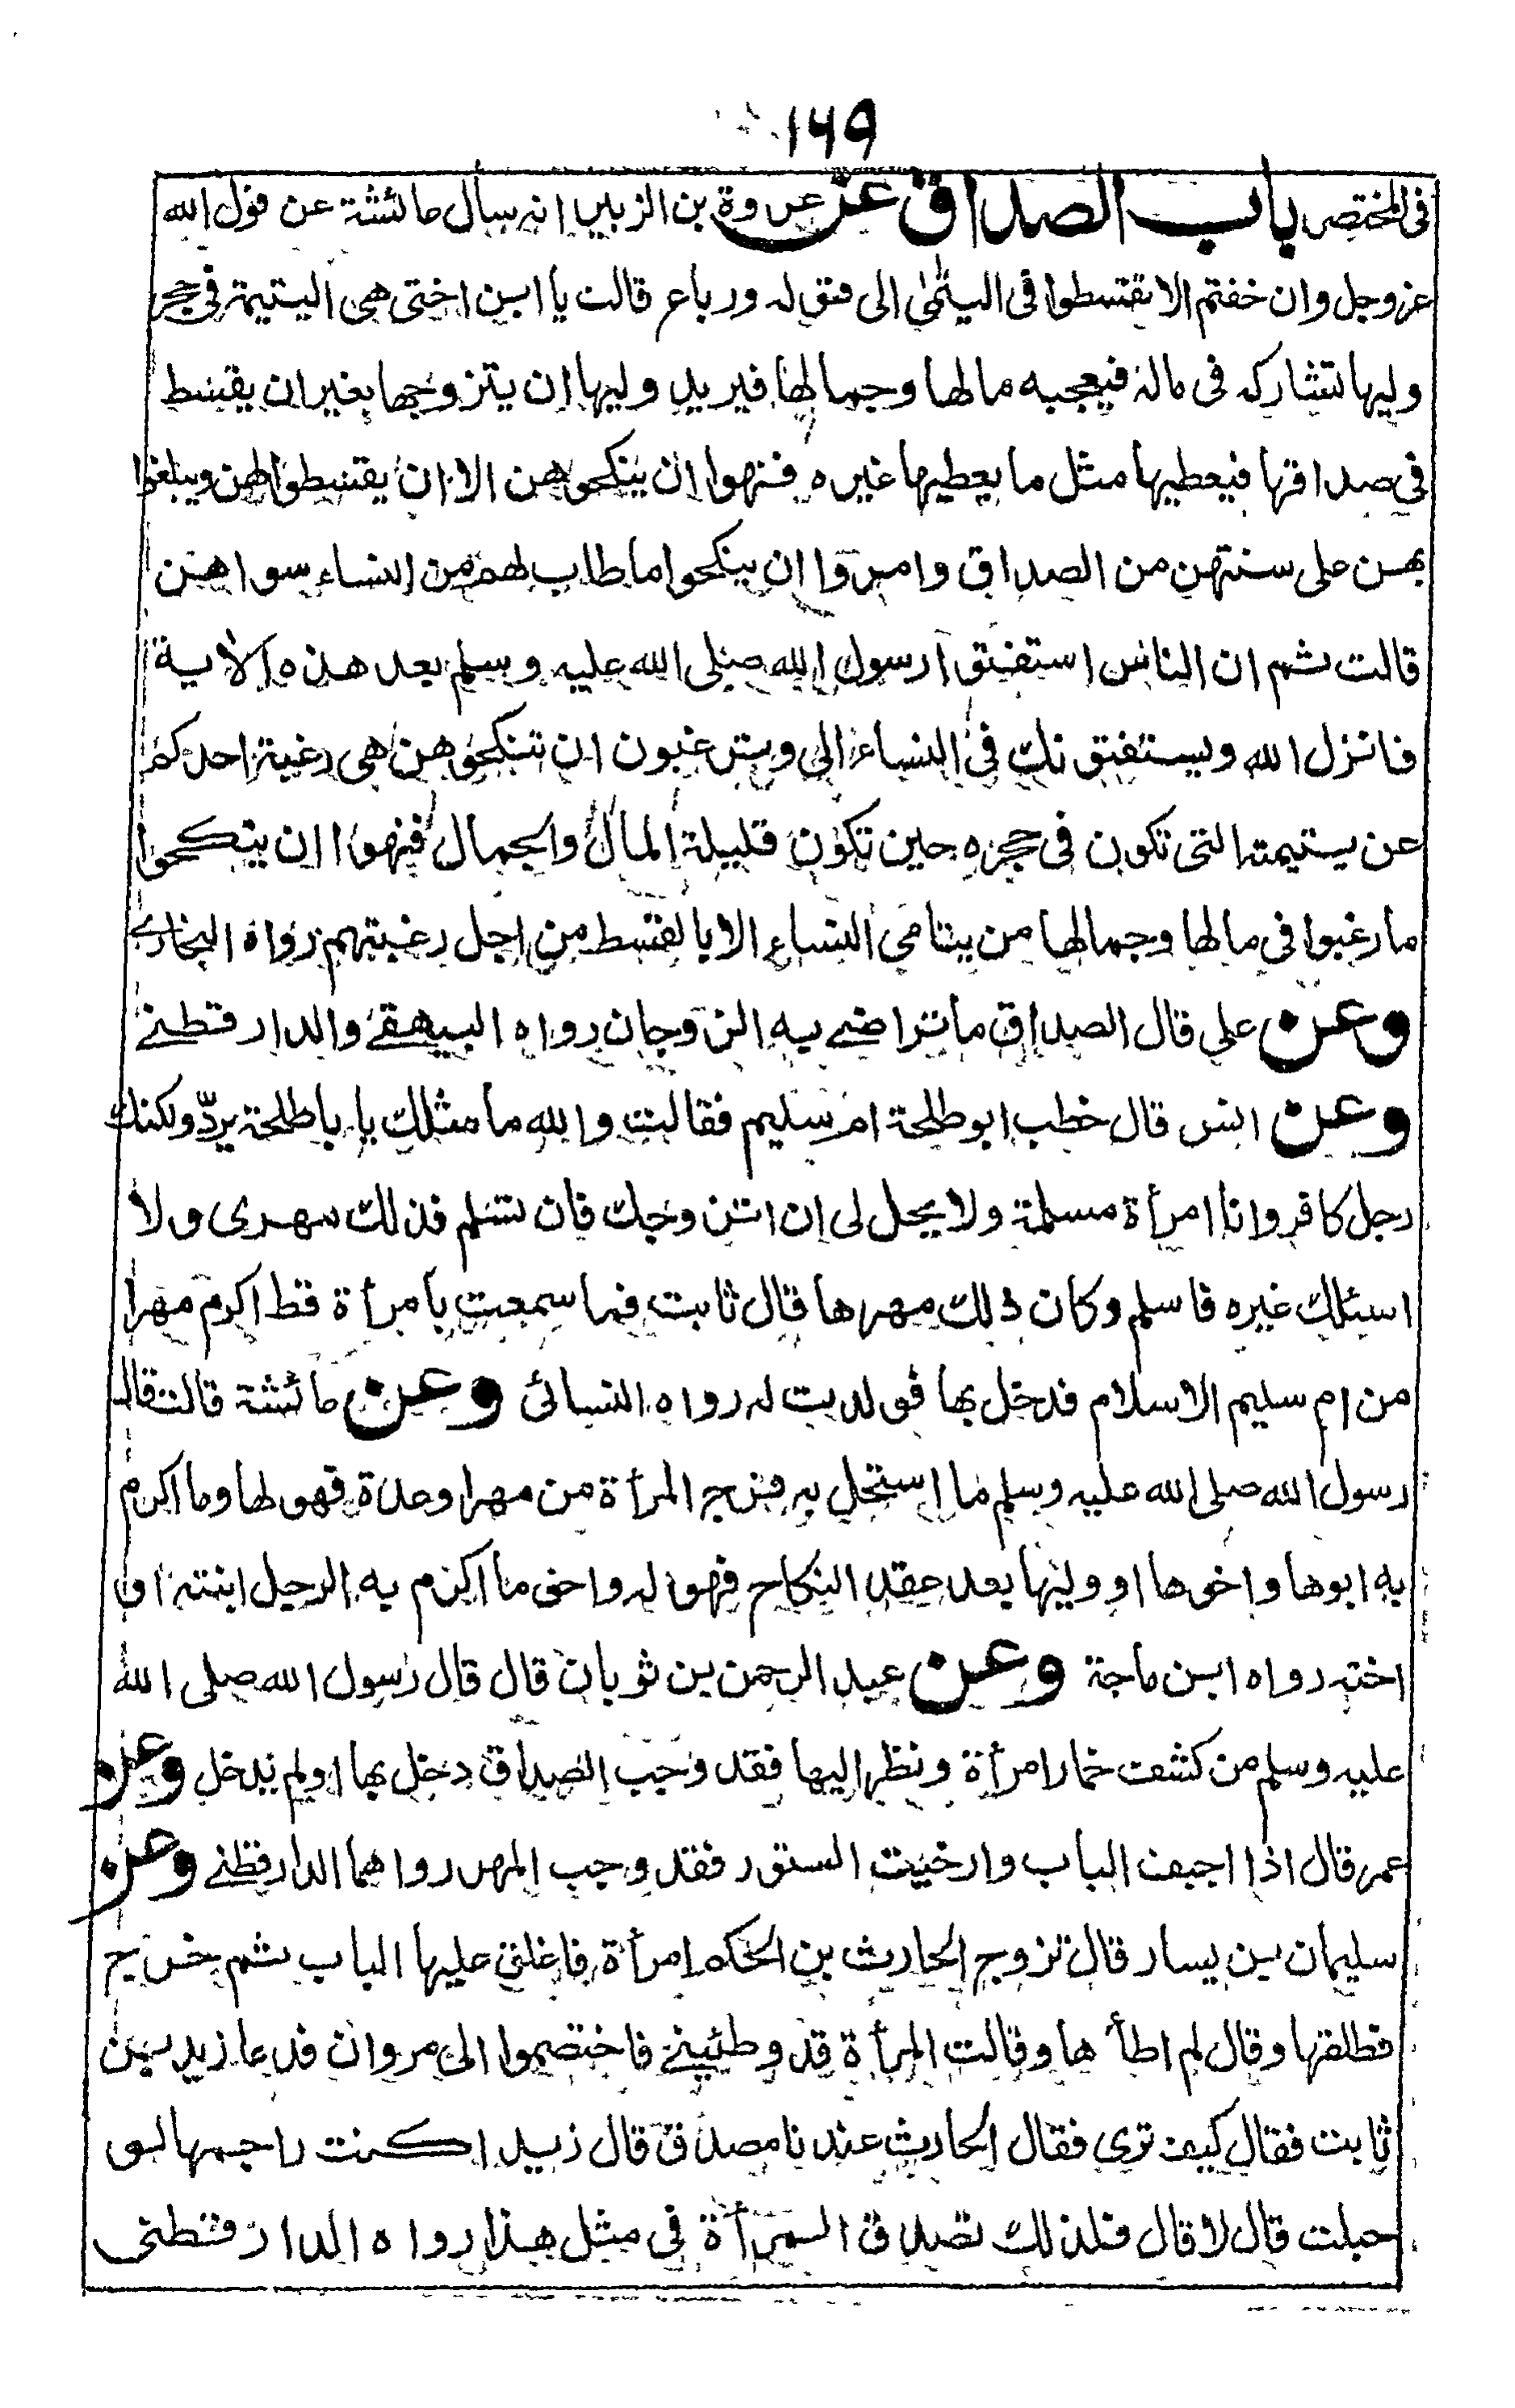 ١٦٩
فى المختصر باب الصداق عن عروة بن الزبير انه سأل عائشة عن قول الله
عز وجل وان خفتم الا تقسطوا فى اليتمٰى الى قوله ورباع قالت يا ابن اختى هى اليتيمة فى حجر
وليها تشاركه فى ماله فيعجبه مالها وجمالها فيريد وليها ان يتزوجها بغير ان يقسط
فى صداقها فيعطيها مثل ما يعطيها غيره فنهوا ان ينكحوهن الا ان يقسطوا لهن ويبلغوا
بهن على سنتهن من الصداق وامروا ان ينكحوا ما طاب لهم من النساء سواهن
قالت ثم ان الناس استفتوا رسول الله صلى الله عليه وسلم بعد هذه الاية
فانزل الله ويستفتونك فى النساء الى وترغبون ان تنكحوهن هى رغبة احدكم
عن يتيمته التى تكون فى حجره حين تكون قليلة المال والجمال فنهوا ان ينكحوا
ما رغبوا فى مالها وجمالها من يتامى النساء الا بالقسط من اجل رغبتهم رواه البخارى
وعن على قال الصداق ما تراضى به الزوجان رواه البيهقى والدارقطنى
وعن انس قال خطب ابو طلحة ام سليم فقالت والله ما مثلك يا با طلحة يردّ ولكنك
رجل كافر وانا امرأة مسلمة ولا يحل لى ان اتزوجك فان تسلم فذلك مهرى ولا
اسئلك غيره فاسلم وكان ذلك مهرها قال ثابت فما سمعت بامرأة قط اكرم مهرا
من ام سليم الاسلام فدخل بها فولدت له رواه النسائى وعن عائشة قالت قال
رسول الله صلى الله عليه وسلم ما استحل به فرج المرأة من مهر او عدة فهو لها وما اكرم
به ابوها واخوها او وليها بعد عقد النكاح فهو له واحق ما اكرم به الرجل ابنته او
اخته رواه ابن ماجة وعن عبد الرحمن بن ثوبان قال قال رسول الله صلى الله
عليه وسلم من كشف خمار امرأة ونظر اليها فقد وجب الصداق دخل بها او لم يدخل وعن
عمر قال اذا اجيف الباب وارخيت الستور فقد وجب المهر رواهما الدارقطنى وعن
سليمان بن يسار قال تزوج الحارث بن الحكم امرأة فاغلق عليها الباب ثم خرج
فطلقها وقال لم اطأها وقالت المرأة قد وطئينى فاختصموا الى مروان فدعا زيد بن
ثابت فقال كيف ترى فقال الحارث عندنا مصدق قال زيد اكنت راجمها لو
حبلت قال لا قال فلذلك تصدق المرأة فى مثل هذا رواه الدارقطنى